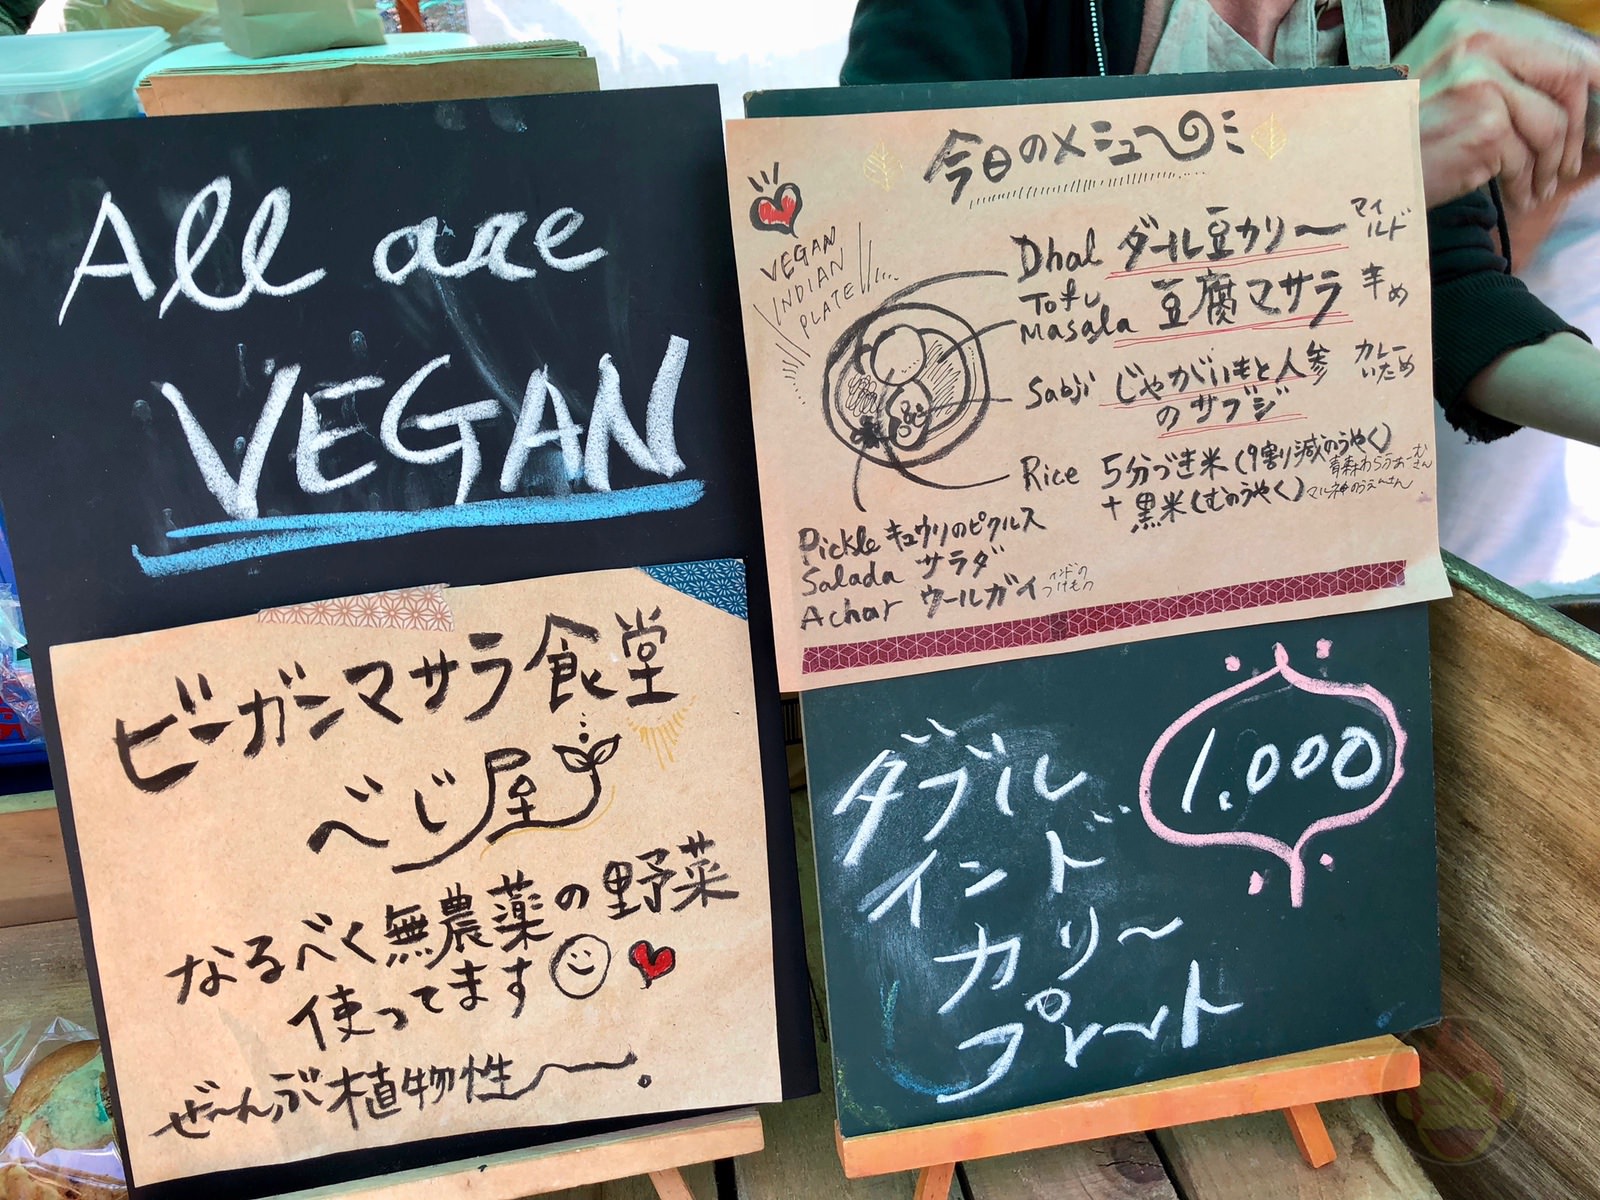 All are
VEGAN
ビーガンマサラ食堂
べじ屋
なるべく無農薬の野菜
使ってます
ぜ〜んぶ植物性〜。
今日のメニュー
VEGAN
INDIAN
PLATE
Dhal ダール豆カリー マイルド
Tofu
Masala 豆腐マサラ 辛め
Sabji じゃがいもと人参 カレー
のサブジ いため
Rice 5分づき米(9割り減のうやく)
+黒米(むのうやく)
Pickle キュウリのピクルス
Salada サラダ
Achar ウールガイ インドの
つけもの
1.000
ダブル
インド
カリー
プレート